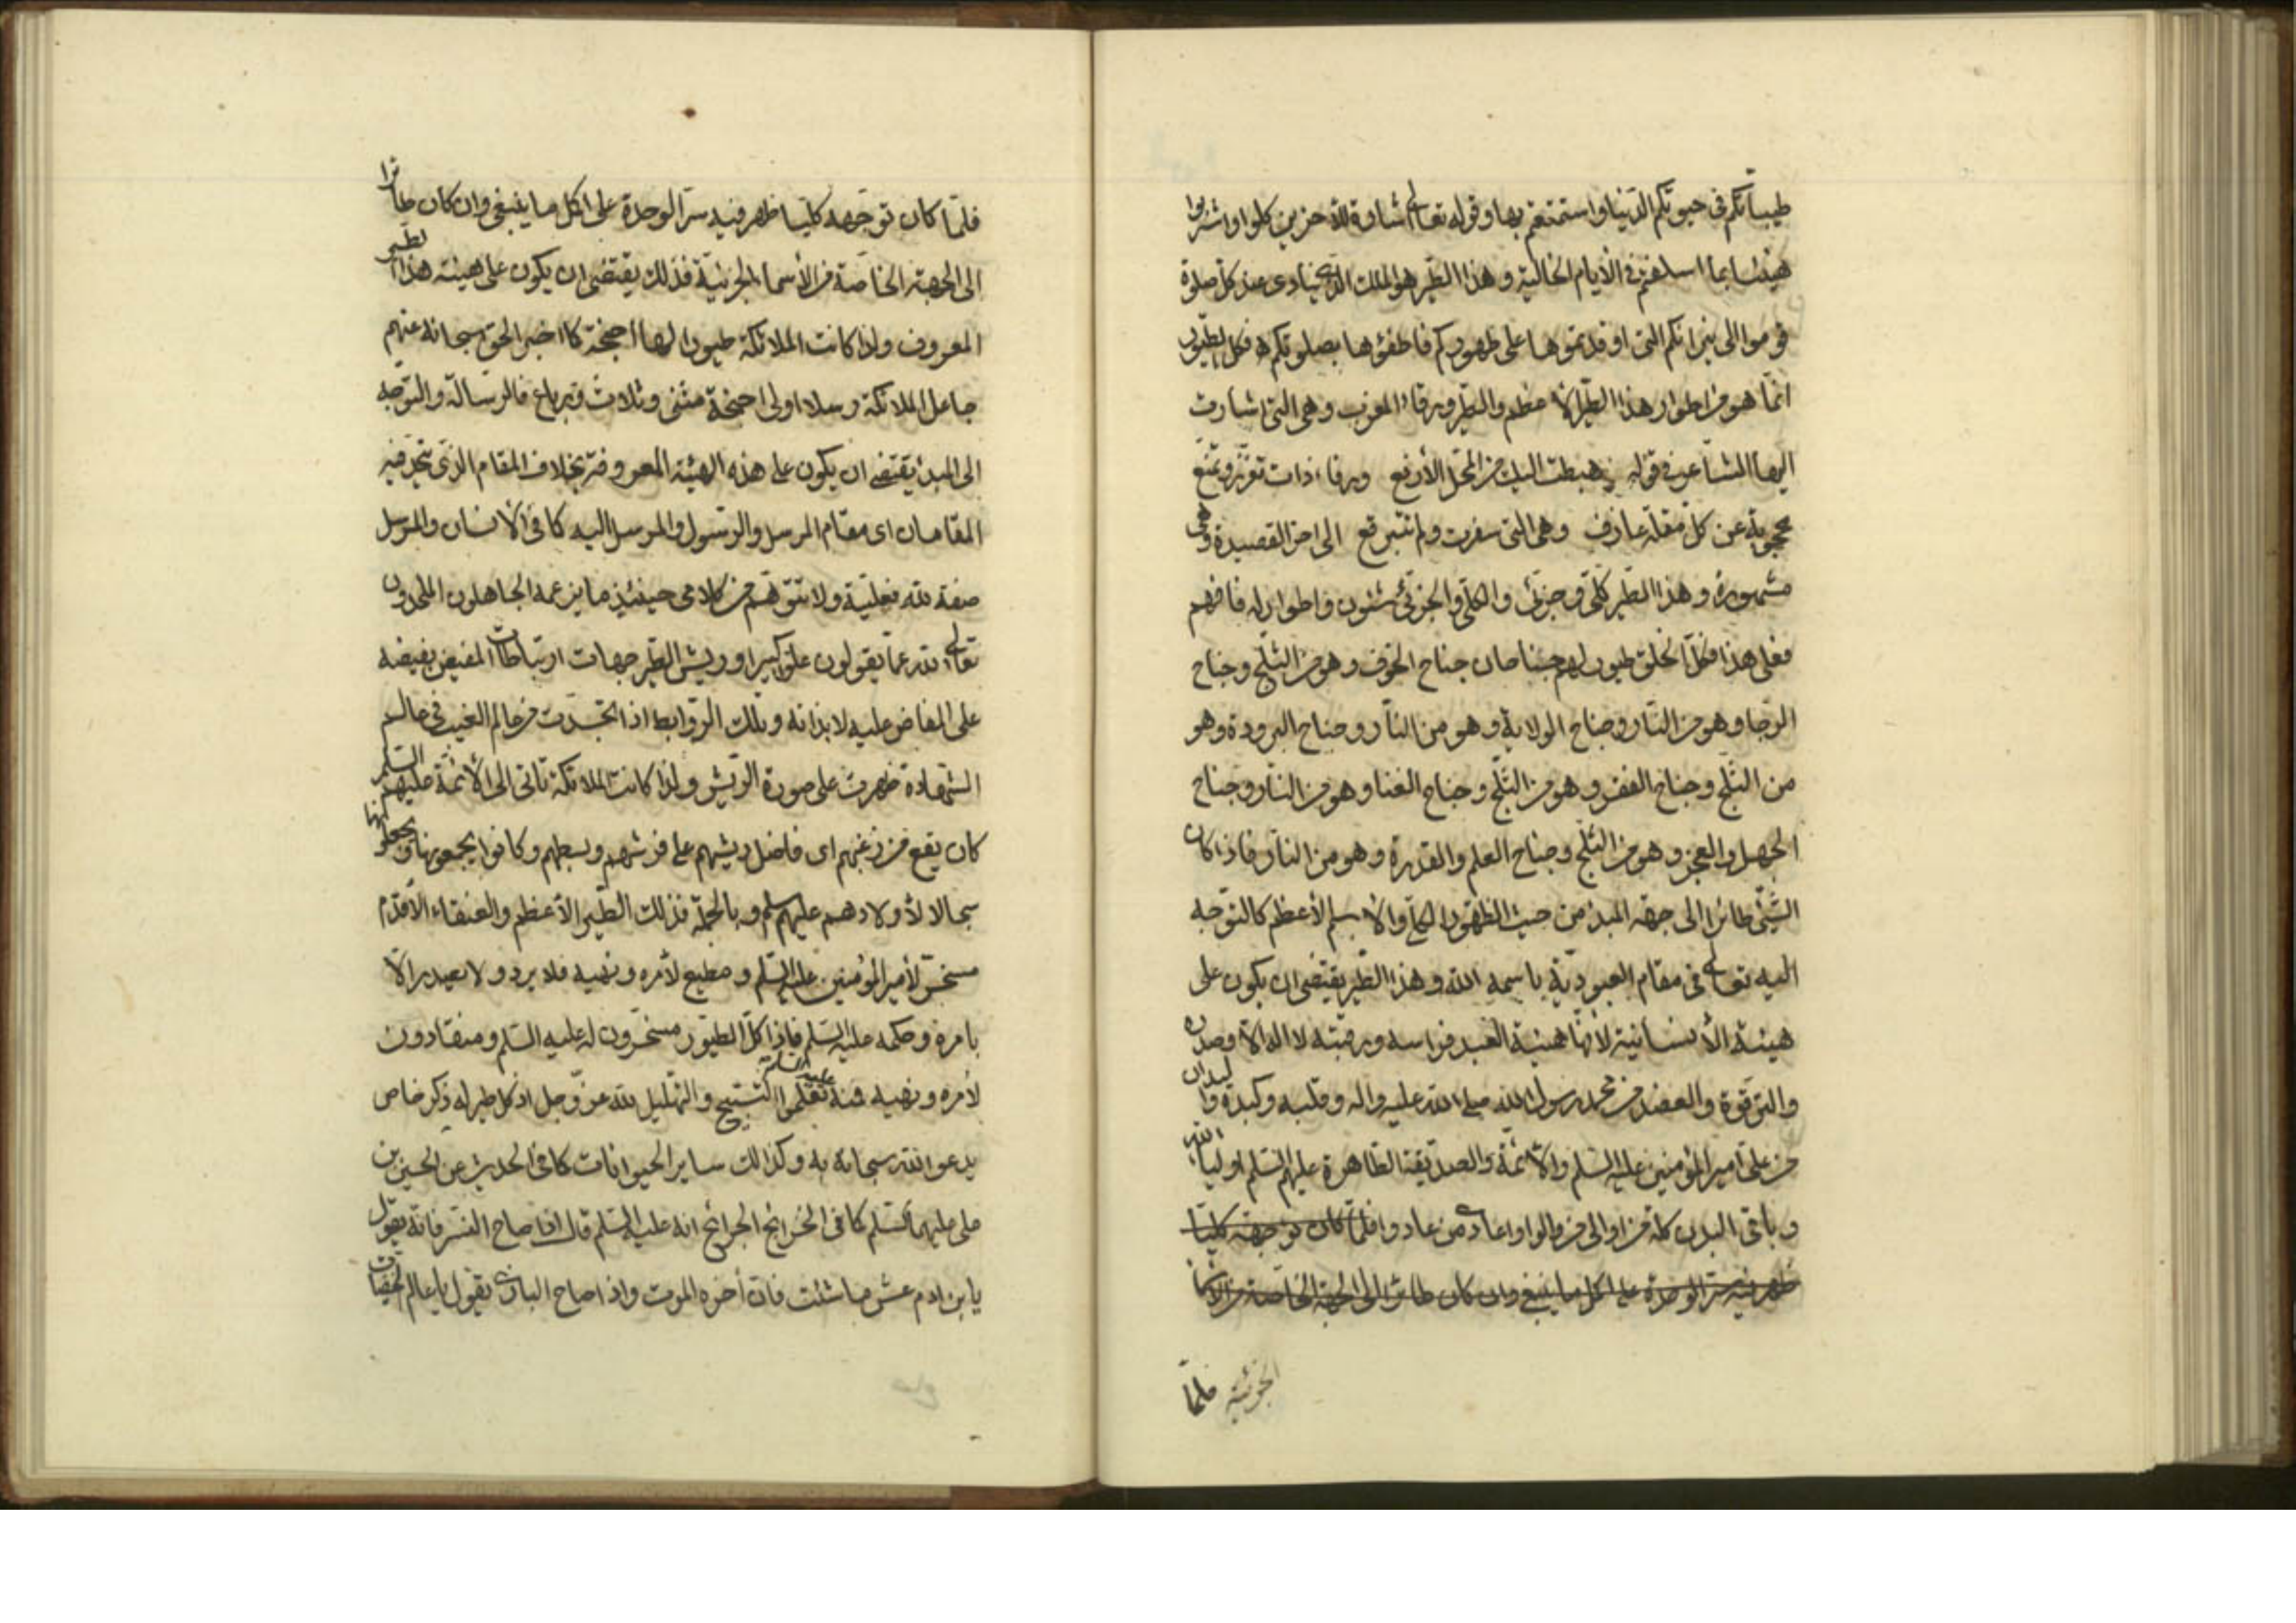 طيباتكم في حيوتكم الدنيا واستمتعتم بها وقوله تعالى اشارة للآخرين كلوا واشربوا
هنيئا بما اسلفتم في الأيام الخالية وهذا الطير هو الملك الذي ينادي عند كل صلوة
قوموا الى نيرانكم التي اوقدتموها على ظهوركم فاطفئوها بصلوتكم فكل الطيور
انما هو من اطوار هذا الطير الاعظم والطير ورقاء المغرب وهي التي اشارت
اليها الشاعر في قوله هبطت اليك من المحل الأرفع ورقاء ذات تعزز وتمنع
محجوبة عن كل مقلة عارف وهي التي سفرت ولم تتبرقع الى اخر القصيدة وهي
مشهورة وهذا الطير كلي وجزئي والكلي والجزئي شئون واطوار له فافهم
فعلى هذا فكل الخلق طيور لهم جناحان جناح الخوف وهو من الثلج وجناح
الرجا وهو من النار وجناح الولاية وهو من النار وجناح البرودة وهو
من الثلج وجناح الفقر وهو من الثلج وجناح الغنا وهو من النار وجناح
الجهل والعجز وهو من الثلج وجناح العلم والقدرة وهو من النار فاذا كان
الشيء طائرا الى جهة المبدء من حيث الظهور الكلي والاسم الأعظم كالتوجه
اليه تعالى في مقام العبودية باسمه الله وهذا الطير يقتضي ان يكون على
هيئة الأنسانية لانها هيئة العبد فراسه ورقبته لا اله الا وصدره
والترقوة والعضد من محمد رسول الله صلى الله عليه واله وقلبه وكبده واليدان
من علي امير المؤمنين عليه السلم والأئمة والصديقة الطاهرة عليهم السلم اولياء الله
وباقي البدن كله من اوالي من والوا واعادي من عادوا فلما كان توجهه كليا
ظهر فيه سر الوحدة على اكمل ما ينبغي وان كان طائرا الى الجهة الخاصة من الاسما
الجزئية فلما
فلما كان توجهه كليا ظهر فيه سر الوحدة على اكمل ما ينبغي وان كان طائرا
الى الجهة الخاصة من الأسما الجزئية فذلك يقتضي ان يكون على هيئة هذا الطير
المعروف ولذا كانت الملائكة طيورا لها اجنحة كما اخبر الحق سبحانه عنهم
جاعل الملائكة رسلا اولى اجنحة مثنى وثلاث ورباع فالرسالة والتوجه
الى المبدء يقتضي ان يكون على هذه الهيئة المعروفة بخلاف المقام الذي يتحد فيه
المقامان اى مقام المرسل والرسول والمرسل اليه كما في الأنسان والمرسل
صفة لله فعلية ولا تتوهم من كلامي حينئذ ما يزعمه الجاهلون الملحدون
تعالى الله عما يقولون علوا كبيرا وريش الطير جهات ارتباطات المفيض بفيضه
على المفاض عليه لا بذاته وتلك الروابط اذا تجسدت من عالم الغيب في عالم
الشهادة ظهرت على صورة الريش ولذا كانت الملائكة تأتي الى الأئمة عليهم السلم
كان يقع من زغبهم اى فاضل ريشهم على فرشهم وبسطهم وكانوا يجمعونها ويجعلونها
سجالا لأولادهم عليهم السلم وبالجملة فذلك الطير الأعظم والعنقاء الأقدم
مسخر لأمير المؤمنين عليه السلم ومطيع لأمره ونهيه فلا يرد ولا يصدر الا
بامره وحكمه عليه السلم فاذا كل الطيور مسخرون له عليه السلم ومنقادون
لأمره ونهيه منه عليه السلم تعلموا التسبيح والتهليل لله عز وجل اذ كل طير له ذكر خاص
يدعو الله سبحانه به وكذلك ساير الحيوانات كما في الحديث عن الحسين بن
علي عليهما السلم كما في الخرايج الجرائح انه عليه السلم قال اذا صاح النسر فانه يقول
يا بن ادم عش ما شئت فان أخره الموت واذا صاح البازي يقول يا عالم الخفيات